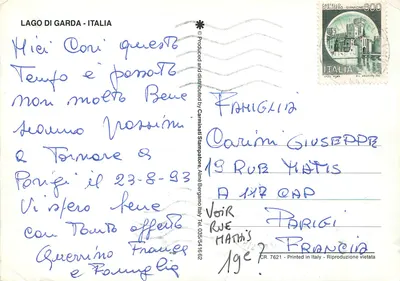 LAGO DI GARDA - ITALIA
Mici Cari questo
Tempo è passato
non molto Bene
siamo prossimi
a Tornare a
Parigi il 23-8-93
Vi spero bene
con Tanto affetto
Guerrino Franca
e Famiglia
© Produced and distributed by Carminati Stampatore, Almè Bergamo Italy Tel. 035/541662
ITALIA
FAMIGLIA
Carimi GIUSEPPE
19 RUE MATIS
A 117 CAP
PARIGI
FRANCIA
VOIR
RUE
MATHIS
19e?
CR. 7621 - Printed in Italy - Riproduzione vietata